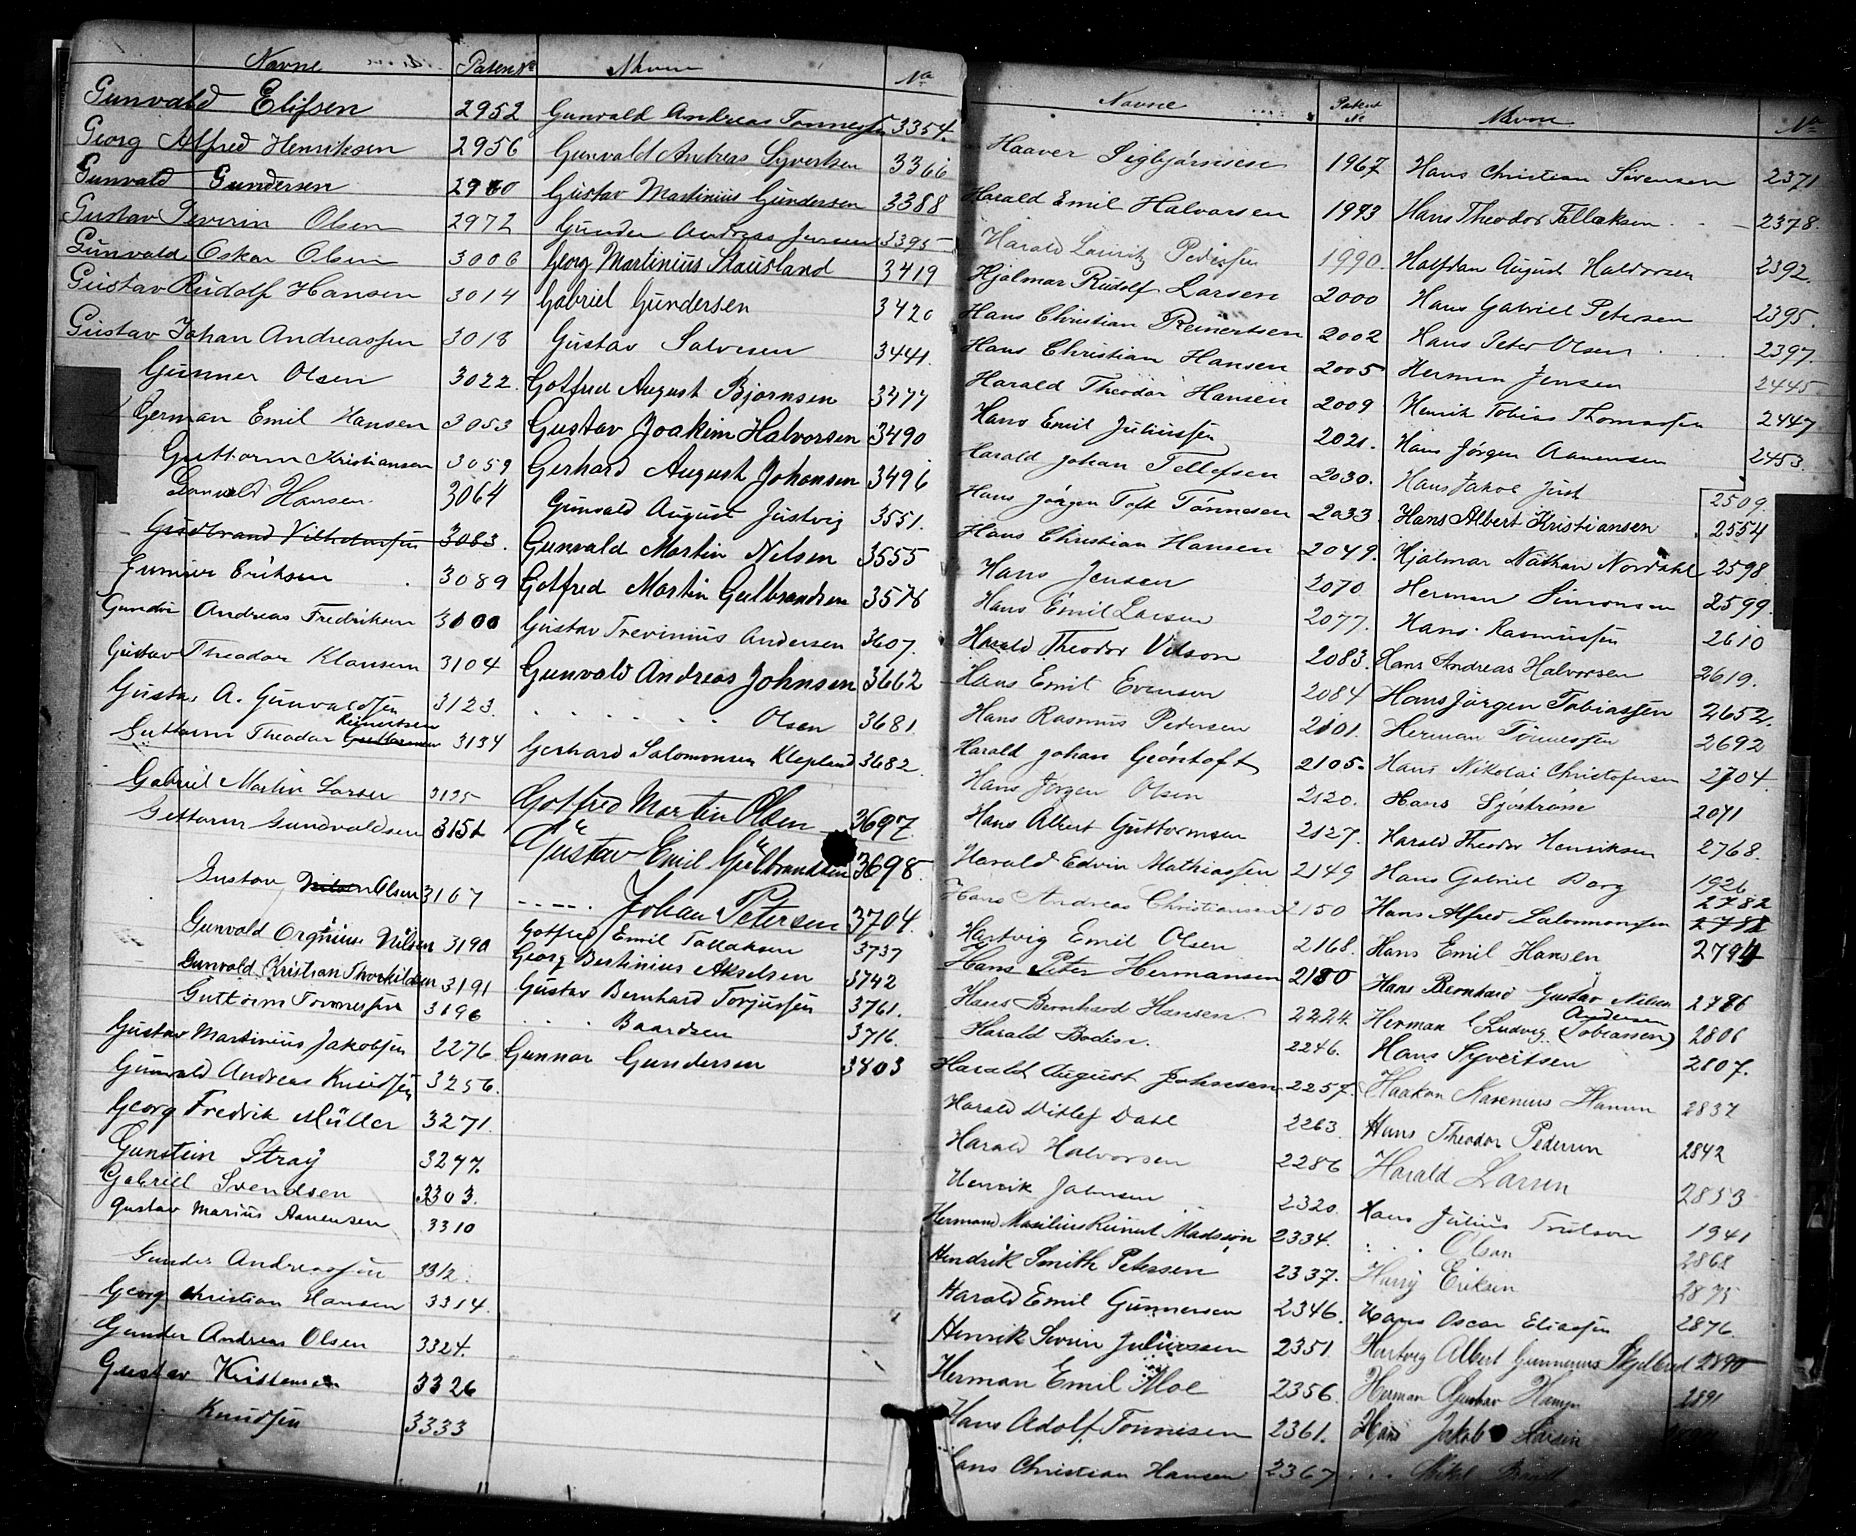 Navne Patent Nr
Gunvald Elifsen 2952
Georg Alfred Henriksen 2956
Gunvald Gundersen 2960
Gustav Severin Olsen 2972
Gunvald Oskar Olsen 3006
Gustav Rudolf Hansen 3014
Gustav Johan Andreassen 3018
Gunner Olsen 3022
German Emil Hansen 3053
Guttorm Kristiansen 3059
Hansen 3064
Gudbrand Vilhelmsen 3083.
Gunner Eriksen 3089
Gunder Andreas Fredriksen 3100
Gustav Theodor Klausen 3104
Gustav A. Gunvaldsen 3123.
Reinertsen
Guttorm Theodor Guttormsen 3134
Gabriel Martin Larsen 3135
Guttorm Gundvaldsen 3151
Gustav Nilsen Olsen 3167
Gunvald Orgnius Nilsen 3190
Gunvald Kristian Thorkildsen 3191
Guttorm Tønnessen 3196
Gustav Martinius Jakobsen 2276
Gunvald Andreas Knudsen 3256.
Georg Fredrik Müller 3271
Gunstein Stray 3277.
Gabriel Svendsen 3303.
Gustav Marius Aanensen 3310
Gunder Andreassen 3312.
Georg Christian Hansen 3314.
Gunder Andreas Olsen 3324.
Gustav Kristensen 3326
..... Knudsen 3333
Navne Nr
Gunvald Andreas Tønnessen 3354.
Gunvald Andreas Syvertsen 3366
Gustav Martinius Gundersen 3388
Gunder Andreas Jensen 3395
Georg Martinius Stausland 3419
Gabriel Gundersen 3420
Gustav Salvesen 3441.
Gotfred August Bjørnsen 3477
Gustav Joakim Halvorsen 3490
Gerhard August Johansen 3496
Gunvald August Justvig 3551.
Gunvald Martin Nilsen 3555
Gotfred Martin Gulbrandsen 3576
Gustav Trevinius Andersen 3607.
Gunvald Andreas Johnsen 3662
. . . . . . Olsen 3681
Gerhard Salomonsen Klepland 3682.
Gotfred Martin Olsen 3697.
Gustav Emil Gulbrandsen 3698.
..... Johan Petersen 3704.
Gotfred Emil Tallaksen 3737
Georg Bertinius Akselsen 3742
Gustav Bernhard Torjussen 3761.
. . . . Baardsen 3716.
Gunnar Gundersen 3403
Navne Patent Nr
Haaver Sigbjørnsen 1967.
Harald Emil Halvorsen 1973
Harald Lauritz Pedersen 1990.
Hjalmar Rudolf Larsen 2000
Hans Christian Reinertsen 2002
Hans Christian Hansen 2005
Harald Theodor Hansen 2009
Hans Emil Juliussen 2021.
Harald Johan Tellefsen 2030.
Hans Jørgen Toft Tønnesen 2033.
Hans Christian Hansen 2049.
Hans Jensen 2070
Hans Emil Larsen 2077.
Harald Theodor Vilson 2083.
Hans Emil Evensen 2084
Hans Rasmus Pedersen 2101.
Harald Johan Grøntoft 2105.
Hans Jørgen Olsen 2120.
Hans Albert Guttormsen 2127.
Harald Edvin Mathiassen 2149
Hans Andreas Christiansen 2150
Hartvig Emil Olsen 2168.
Hans Peter Hermansen 2180
Hans Bernhard Hansen 2224.
Harald Bodin 2246.
Harald August Johnsen 2257.
Harald Ditlef Dahl 2263.
Harald Halvorsen 2286
Henrik Johnsen 2320.
Hermand Masilius Reinert Madssen 2334.
Hendrik Smith Petersen 2337.
Harald Emil Gunnersen 2346.
Henrik Severin Juliussen 2351
Herman Emil Moe 2356.
Hans Adolf Tønnesen 2361.
Hans Christian Hansen 2367.
Navne Nr
Hans Christian Sørensen 2371
Hans Theodor Tellaksen 2378.
Halfdan August Haldorsen 2392.
Hans Gabriel Petersen 2395.
Hans Peter Olsen 2397.
Herman Jensen 2445
Henrik Tobias Thomassen 2447
Hans Jørgen Aanensen 2453
Hans Jakob Just 2509.
Hans Albert Kristiansen 2554
Hjalmar Nathan Nordahl 2598.
Herman Simonsen 2599.
Hans Rasmussen 2610
Hans Andreas Halvorsen 2619.
Hans Jørgen Tobiassen 2652.
Herman Tønnessen 2692
Hans Nikolai Christofersen 2704.
Hans Sjøstrøm 2071
Harald Theodor Henriksen 2768.
Hans Gabriel Dorg 1926
2782
Hans Alfred Salomonsen 2781
Hans Emil Hansen 2794
Hans Bernhard Gustav Nilsen 2786
Andersen
Herman Ludvig (Tobiassen) 2806
Hans Syvertsen 2807.
Haakon Karenius Hansen 2837
Hans Theodor Pedersen 2842
Harald Larsen 2853
Hans Julius Trulson 1941
. . . Olsen 2868
Harry Eriksen 2875
Hans Oscar Eliassen 2876.
Hartvig Albert Gunnerius 2890
Herman Gustav Hansen 2891
Hans Jakob Larsen
. . .